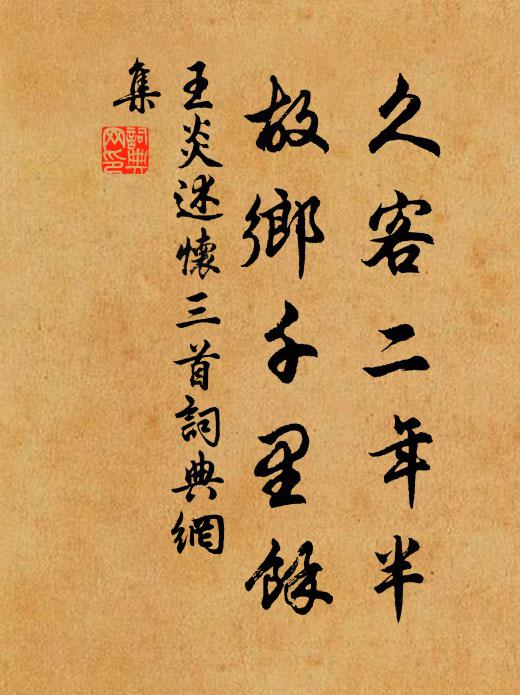 久客二年半
故鄉千里餘
王炎述懷三首詞典網
集
詞典
网印